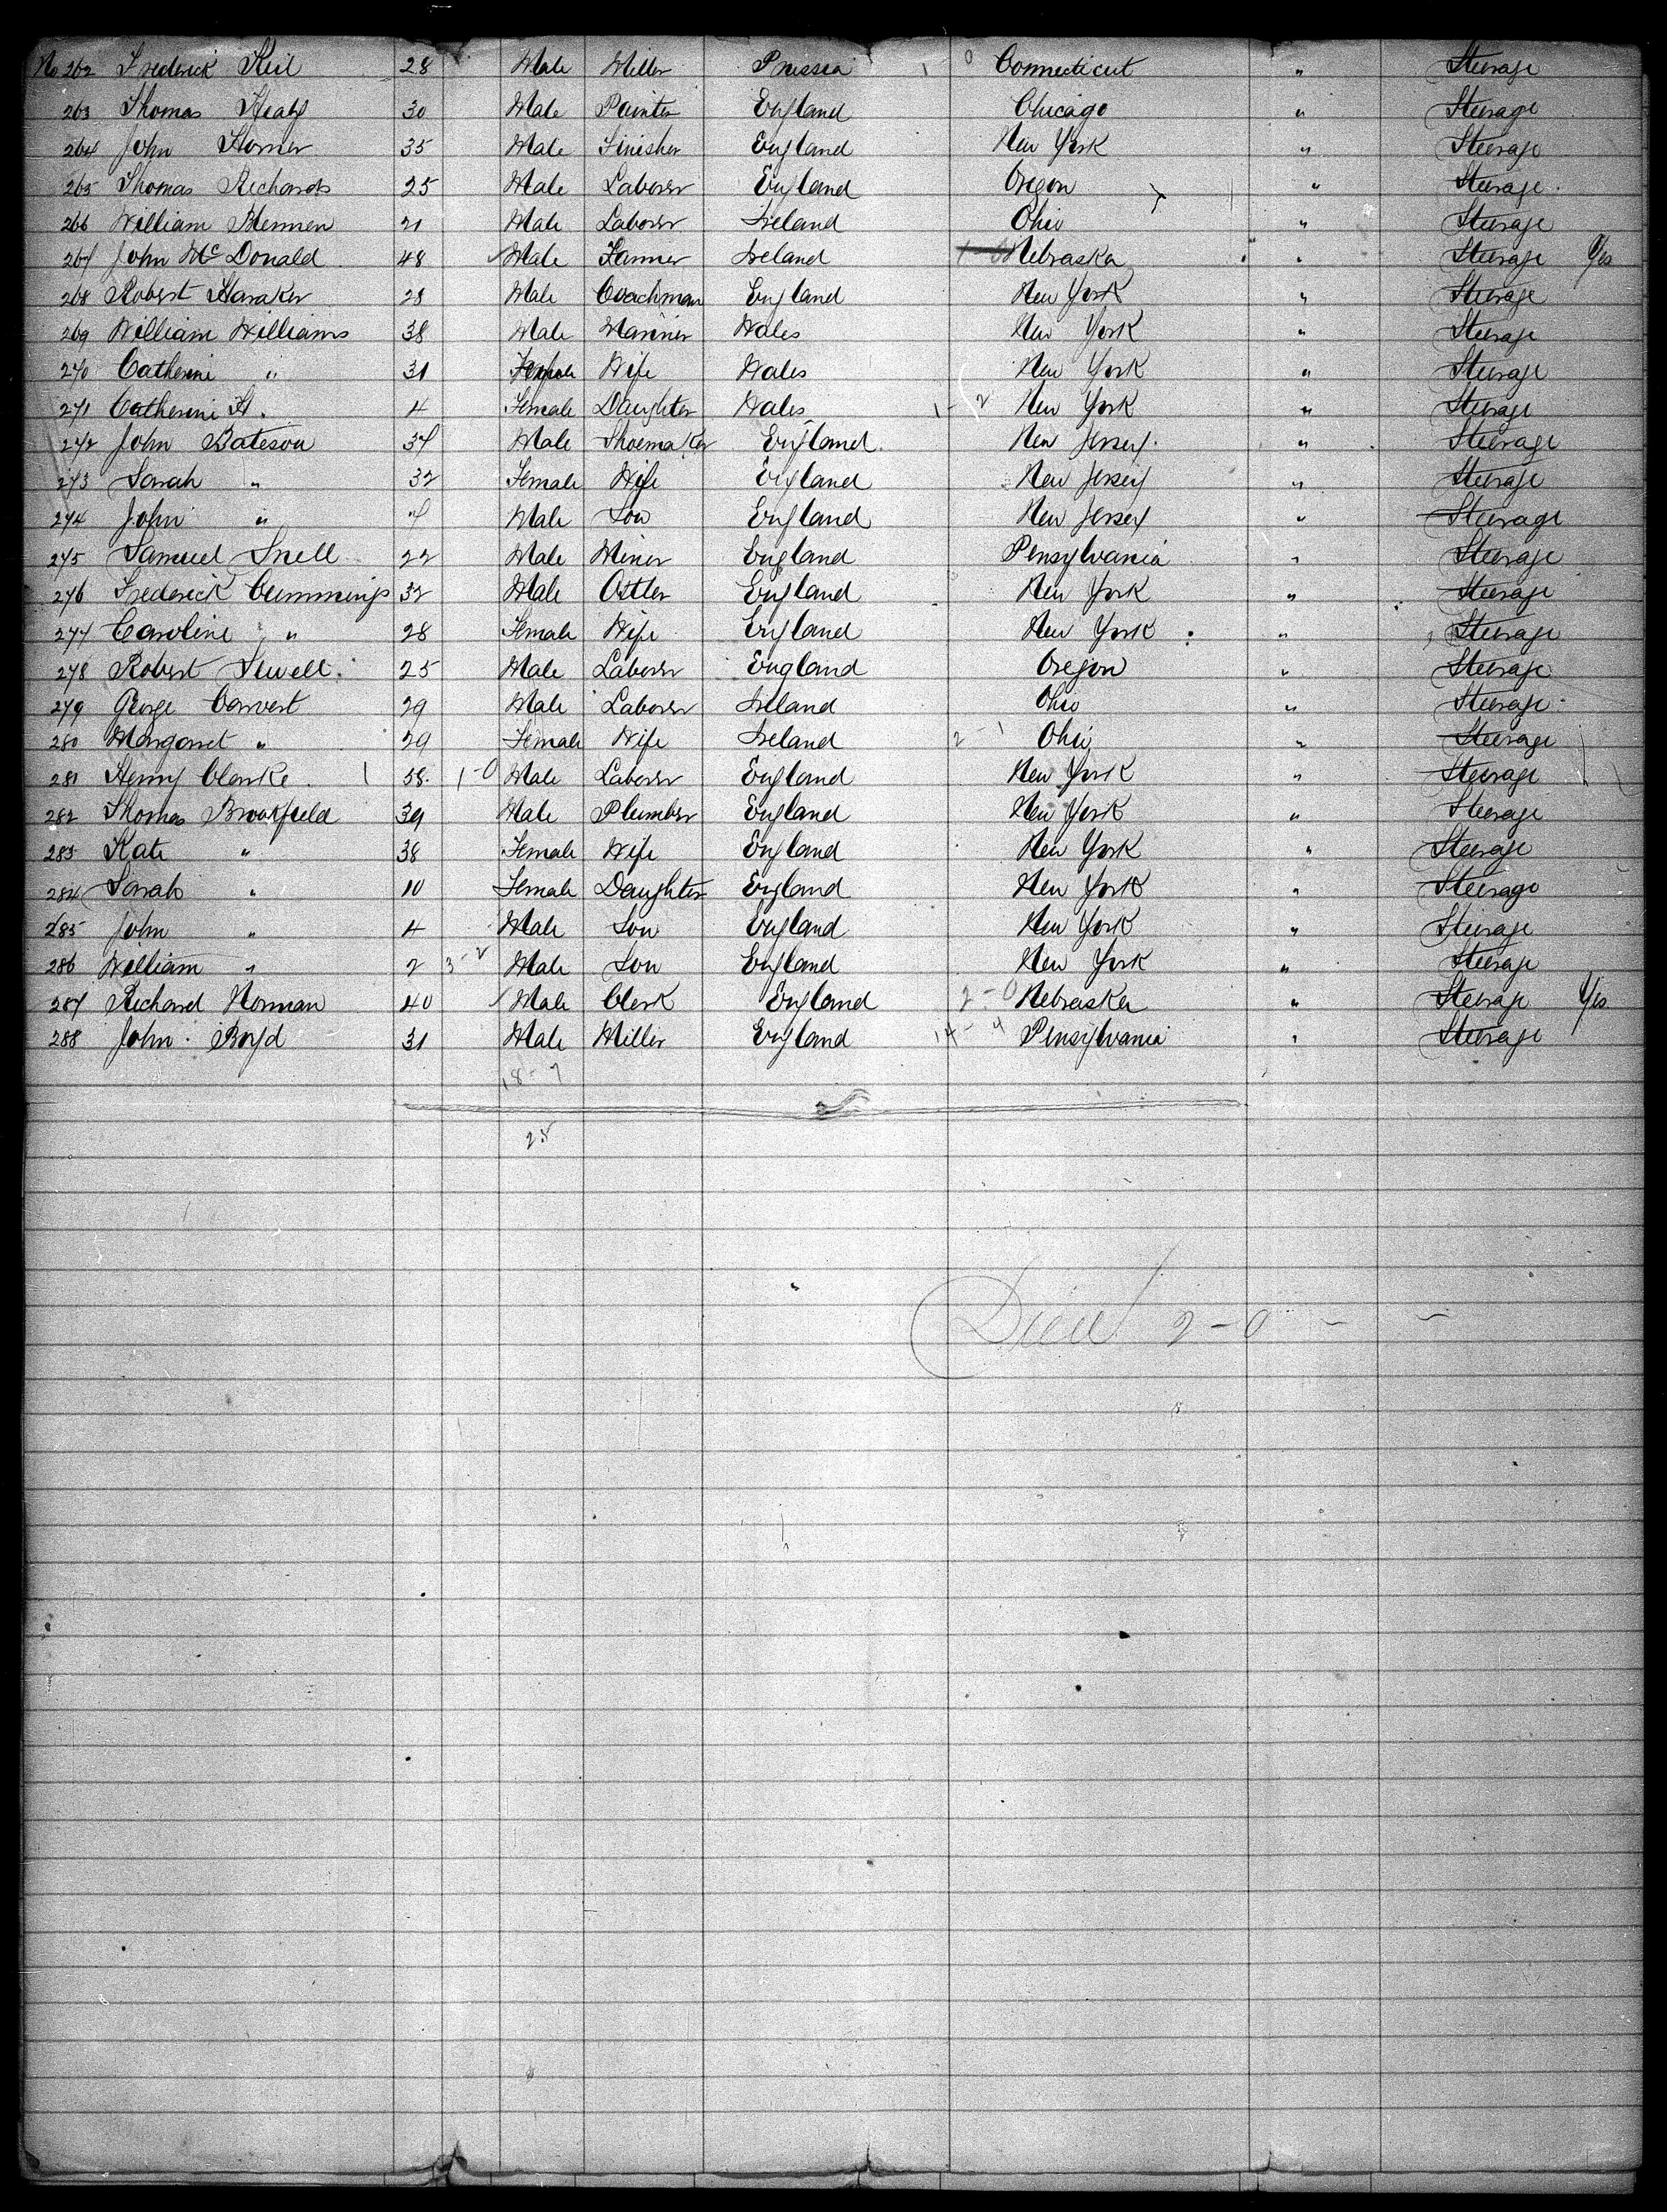 No 262 Frederick Keil 28 Male Miller Prussia 1 - 0 Connecticut " Steerage
263 Thomas Healy 30 Male Painter England Chicago " Steerage
264 John Horner 35 Male Finisher England New York " Steerage
265 Thomas Richards 25 Male Laborer England Oregon " Steerage
266 William 21 Male Laborer Ireland Ohio " Steerage
267 John McDonald 48 Male Farmer Ireland Nebraska " Steerage Yes
268 Robert Haraker 28 Male Coachman England New York " Steerage
269 William Williams 38 Male Mariner Wales New York " Steerage
270 Catherine " 31 Female Wife Wales New York " Steerage
271 Catherine H. 4 Female Daughter Wales 1 - 2 New York " Steerage
272 John Bateson 37 Male Shoemaker England New Jersey " Steerage
273 Sarah " 32 Female Wife England New Jersey " Steerage
274 John " 7 Male Son England New Jersey " Steerage
275 Samuel Snell 22 Male Miner England Pensylvania " Steerage
276 Frederick Cummings 32 Male Ostler England New York " Steerage
277 Caroline " 28 Female Wife England New York " Steerage
278 Robert Sewell 25 Male Laborer England Oregon " Steerage
279 George 29 Male Laborer Ireland Ohio " Steerage
280 Margaret " 29 Female Wife Ireland 2 - 1 Ohio " Steerage
281 Henry Clarke 58 1-0 Male Laborer England New York " Steerage
282 Thomas Brookfield 39 Male Plumber England New York " Steerage
283 Kate " 38 Female Wife England New York " Steerage
284 Sarah " 10 Female Daughter England New York " Steerage
285 John " 4 Male Son England New York " Steerage
286 William " 2 3-2 Male Son England New York " Steerage
287 Richard Norman 40 Male Clerk England 2-0 Nebraska " Steerage Yes
288 John Boyd 31 Male Miller England 14-4 Pensylvania " Steerage
18-7
25
Died 2-0 - -